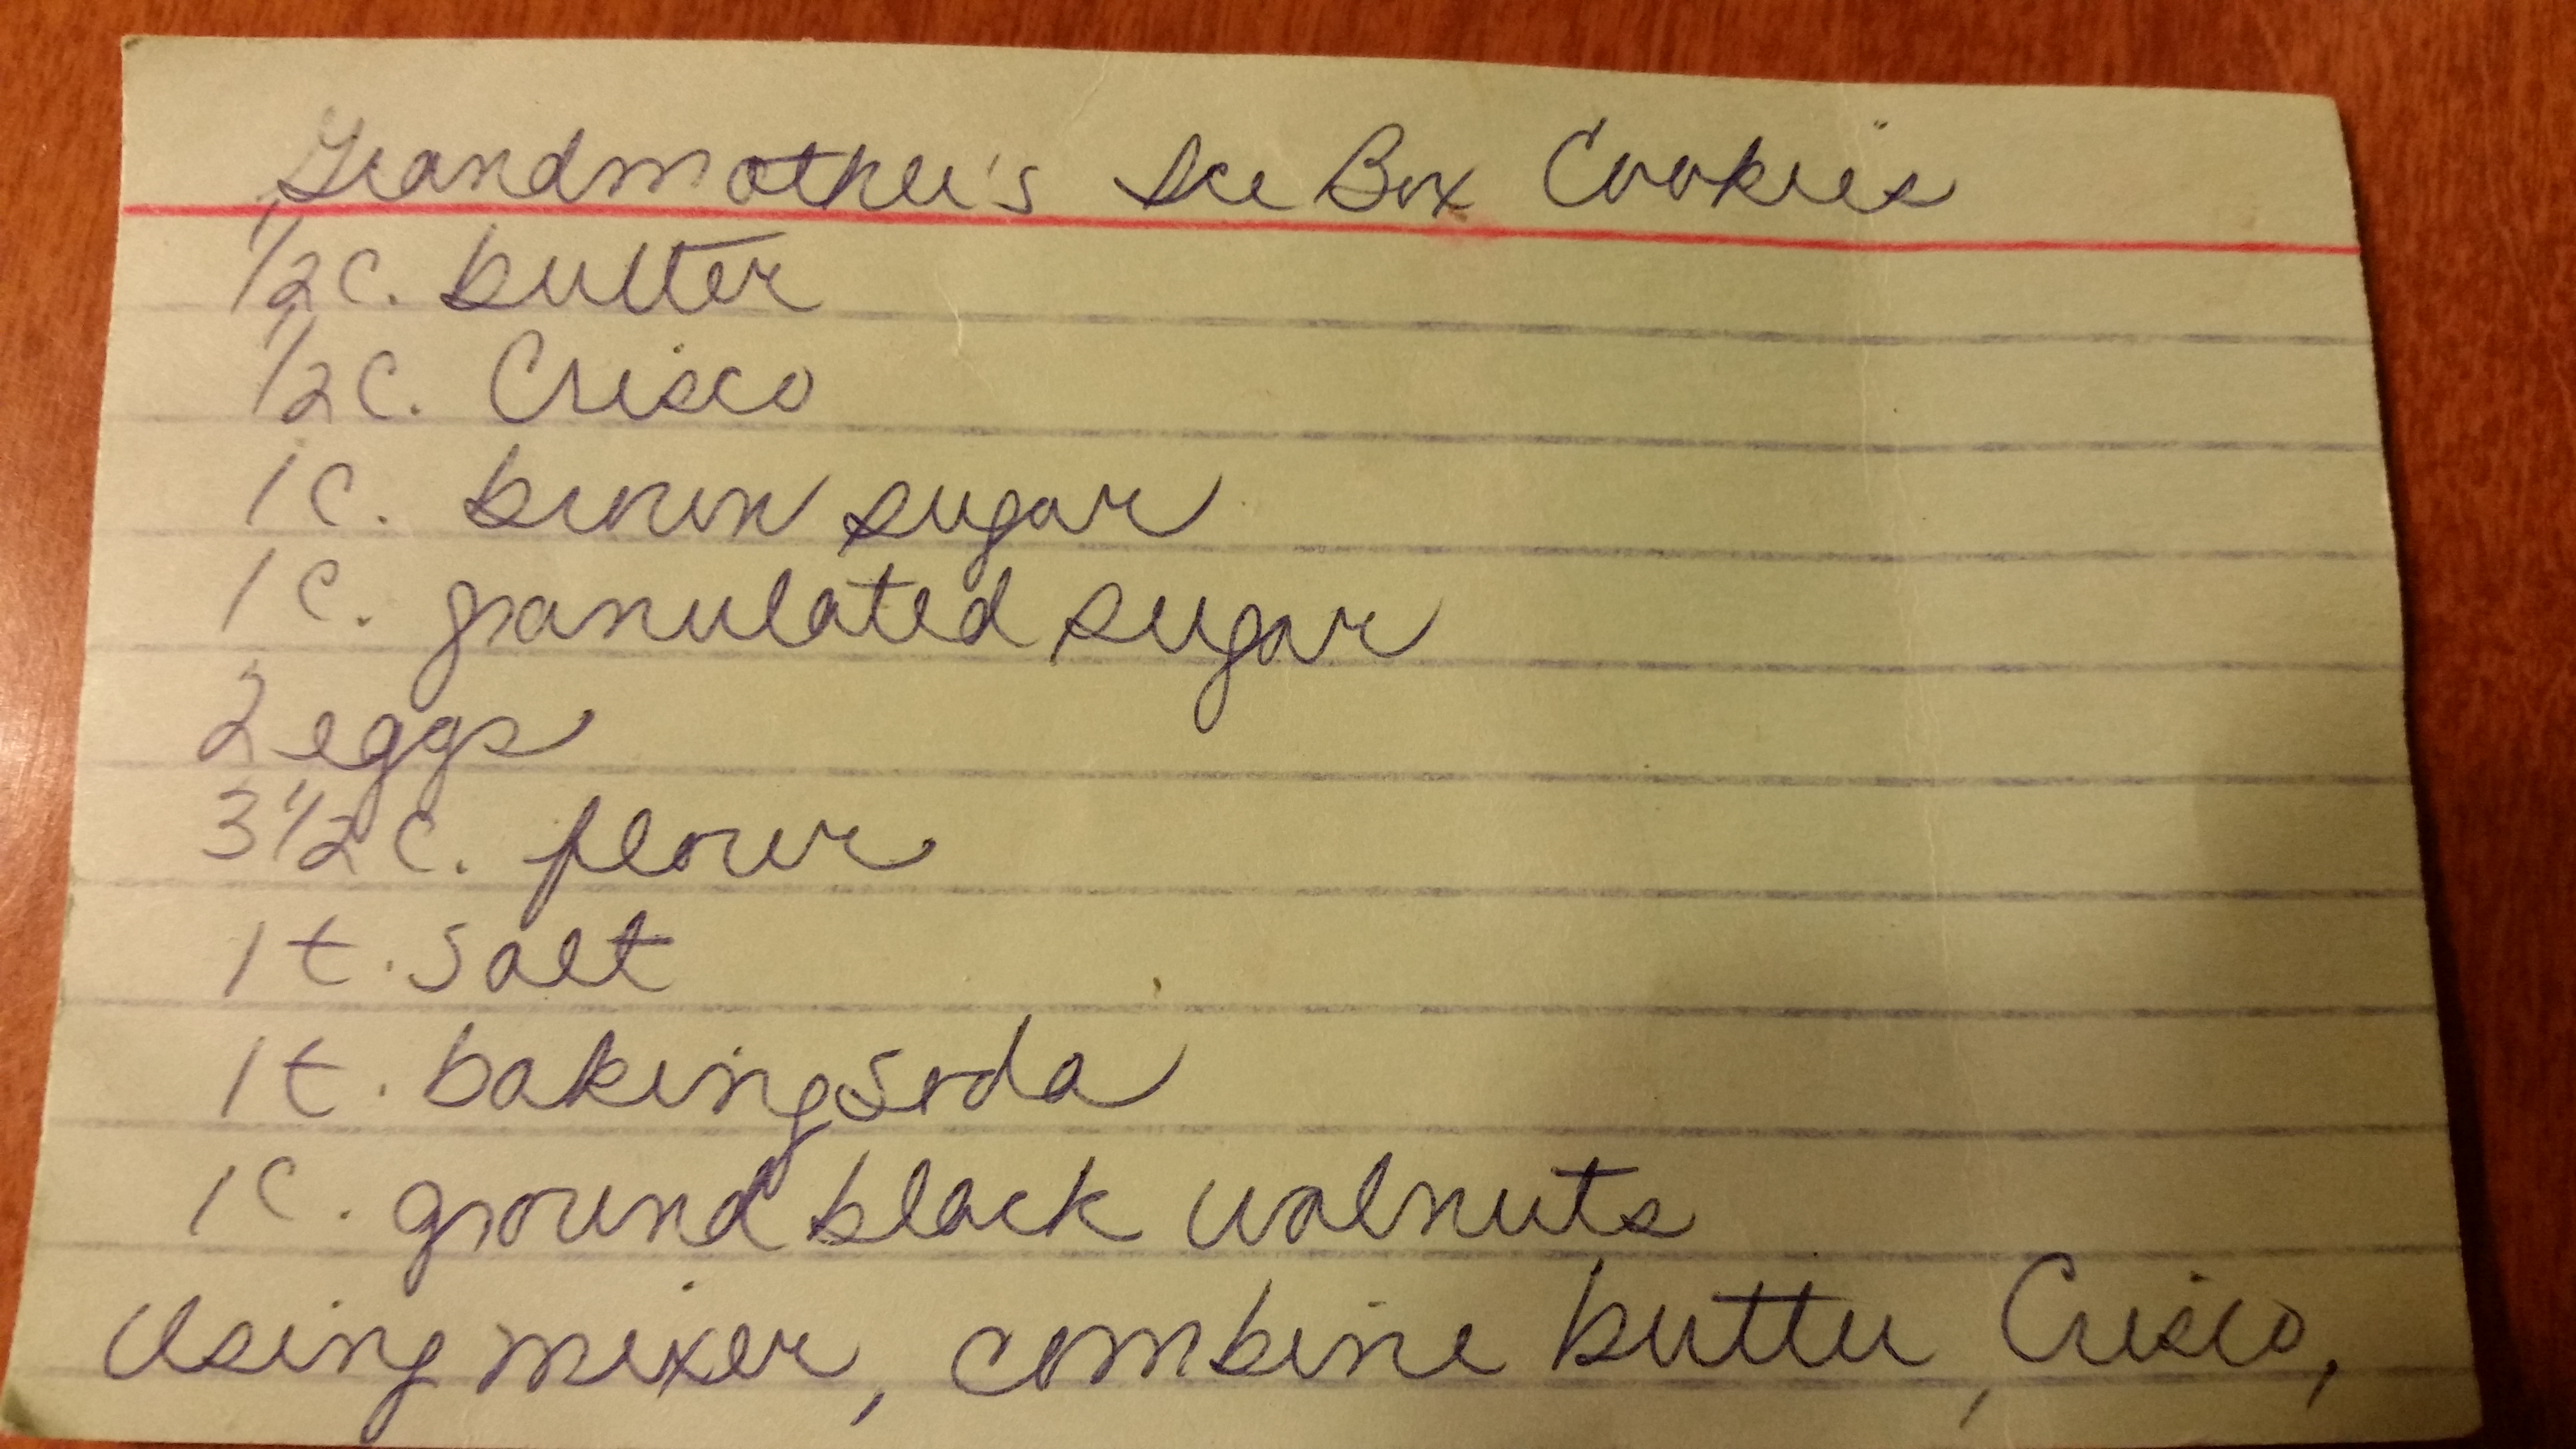 Grandmother's Ice Box Cookies
1/2 c. butter
1/2 c. Crisco
1 c. brown sugar
1 c. granulated sugar
2 eggs
3 1/2 c. flour
1 t. salt
1 t. baking soda
1 c. ground black walnuts
Using mixer, combine butter, Crisco,